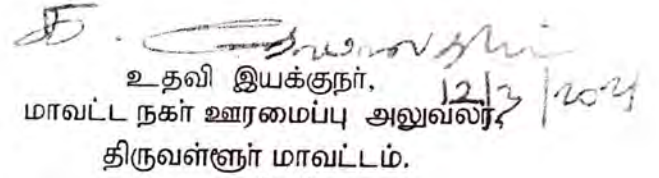 உதவி இயக்குநர்,
மாவட்ட நகர் ஊரமைப்பு அலுவலர்,
திருவள்ளூர் மாவட்டம்.